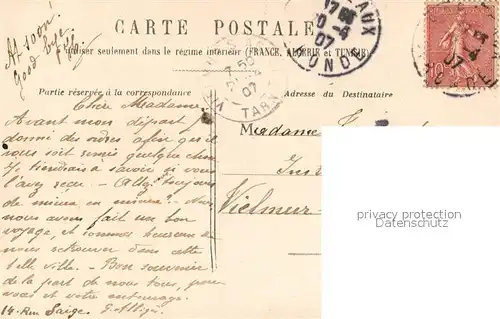 CARTE POSTALE
À utiliser seulement dans le régime intérieur (FRANCE, ALGERIE et TUNISIE)
Partie réservée à la correspondance
Adresse du Destinataire
At soon!
Good bye
Chère Madame,
Avant mon départ j'ai
donné des ordres afin qu'il
vous soit remis quelque chose
Je tiendrais à savoir si vous
l'avez reçu - Allez toujours
de mieux en mieux? Nous
nous avons fait un bon
voyage, et sommes heureux de
nous retrouver dans cette
belle ville. - Bon souvenir
de la part de nous tous, pour
vous et votre entourage.
14. Rue
Madame
Inst
Vielmur
TARN
07
privacy protection
Datenschutz